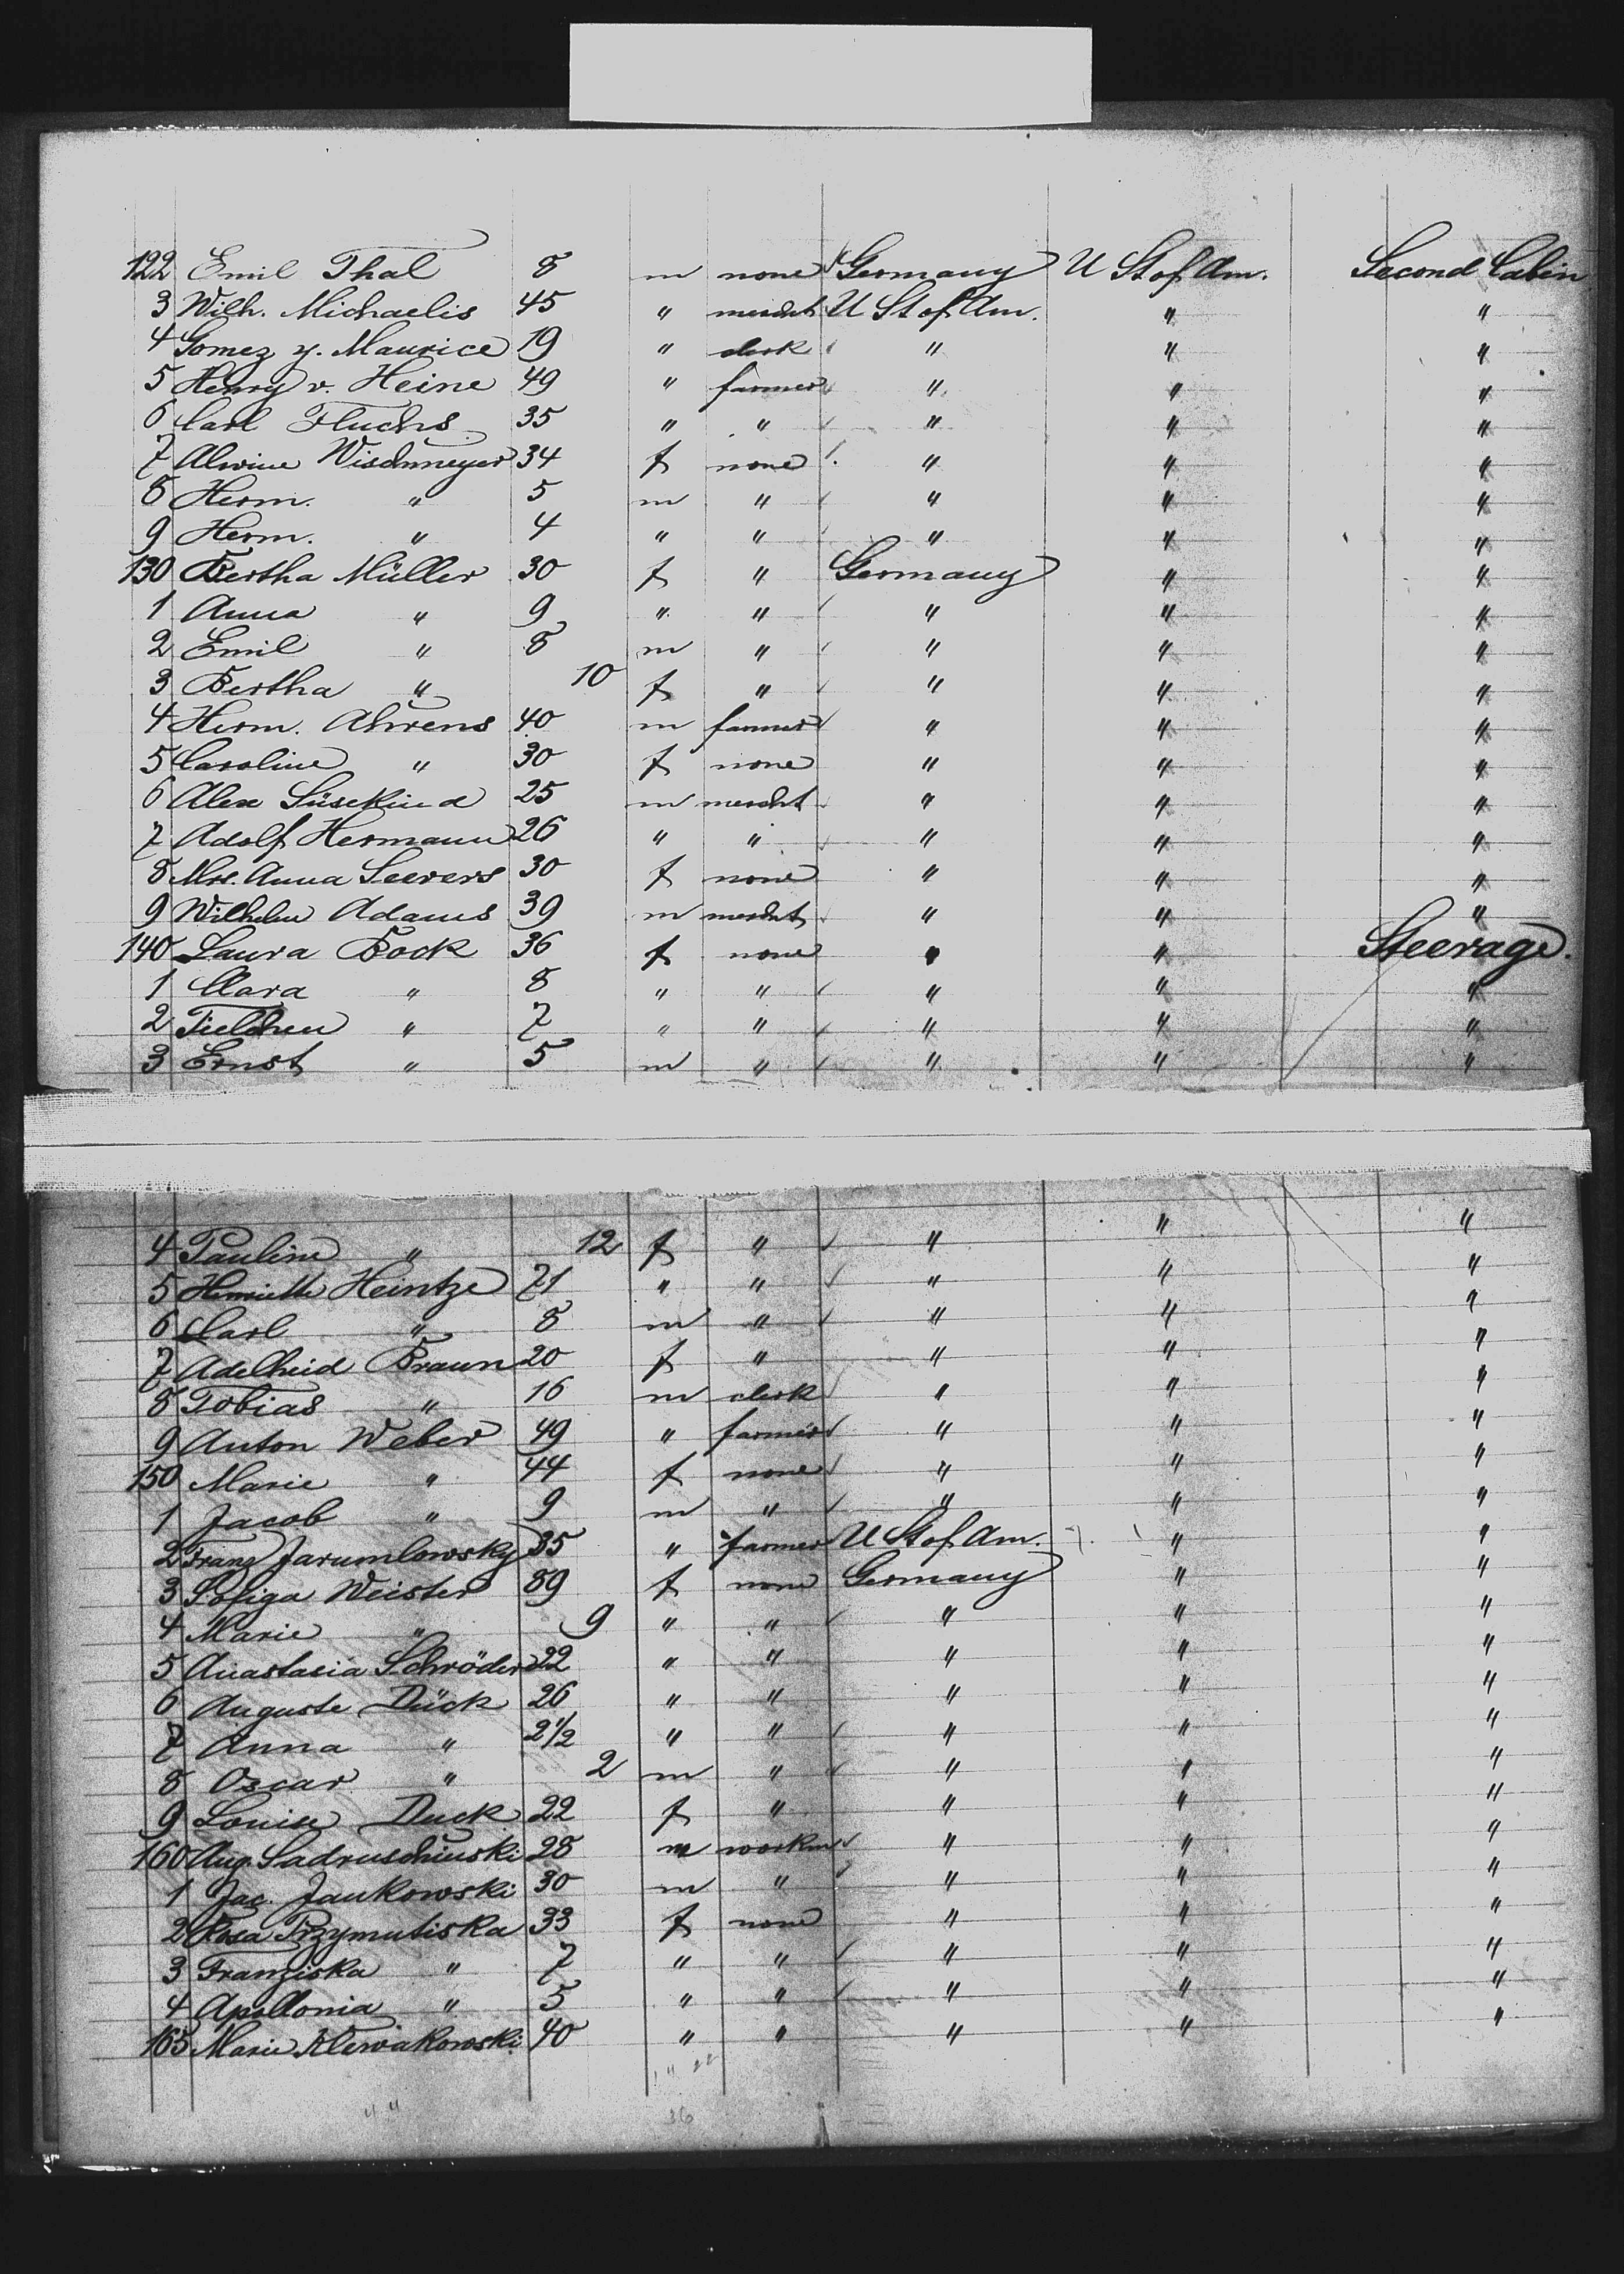 122 Emil Thal 8 m none Germany U St of Am. Second Cabin
3 Wilh. Michaelis 45 " mercht U St of Am. " "
4 Gomez y. Maurice 19 " clerk " " "
5 Henry v. Heine 49 " farmer " " "
6 Carl Fluchs 35 " " " " "
7 Alwine Wischmeyer 34 f none " " "
8 Herm. " 5 m " " " "
9 Herm. " 4 " " " " "
130 Bertha Müller 30 f " Germany " "
1 Anna " 9 " " " " "
2 Emil " 8 m " " " "
3 Bertha " 10 f " " " "
4 Herm. Ahrens 40 m farmer " " "
5 Caroline " 30 f none " " "
6 Alex Süsekind 25 m mercht " " "
7 Adolf Hermann 26 " " " " "
8 Mrs. Anna Seevers 30 f none " " "
9 Wilhelm Adams 39 m mercht " " "
140 Laura Bock 36 f none " " Steerage.
1 Clara " 8 " " " " "
2 Tieldchen " 7 " " " " "
3 Ernst " 5 m " " " "
4 Pauline " 12 f " " " "
5 Henriette Heintze 71 " " " " "
6 Carl " 8 m " " " "
7 Adelheid Braun 20 f " " " "
8 Tobias " 16 m clerk " " "
9 Anton Weber 49 " farmer " " "
150 Marie " 44 f none " " "
1 Jacob " 9 m " " " "
2 Franz Jarumlowsky 35 " farmer U St of Am. " "
3 Sofiga Weister 39 f none Germany " "
4 Marie " 9 " " " " "
5 Anastasia Schröder 22 " " " " "
6 Auguste Dück 26 " " " " "
7 Anna " 2 1/2 " " " " "
8 Oscar " 2 m " " " "
9 Louise Duck 22 f " " " "
160 Aug. Sadruschinski 28 m workm " " "
1 Jac. Jankowski 30 m " " " "
2 Rosa Przymutiska 33 f none " " "
3 Franziska " 7 " " " " "
4 Apollonia " 5 " " " " "
165 Marie Klewakowski 40 " " " " "
36